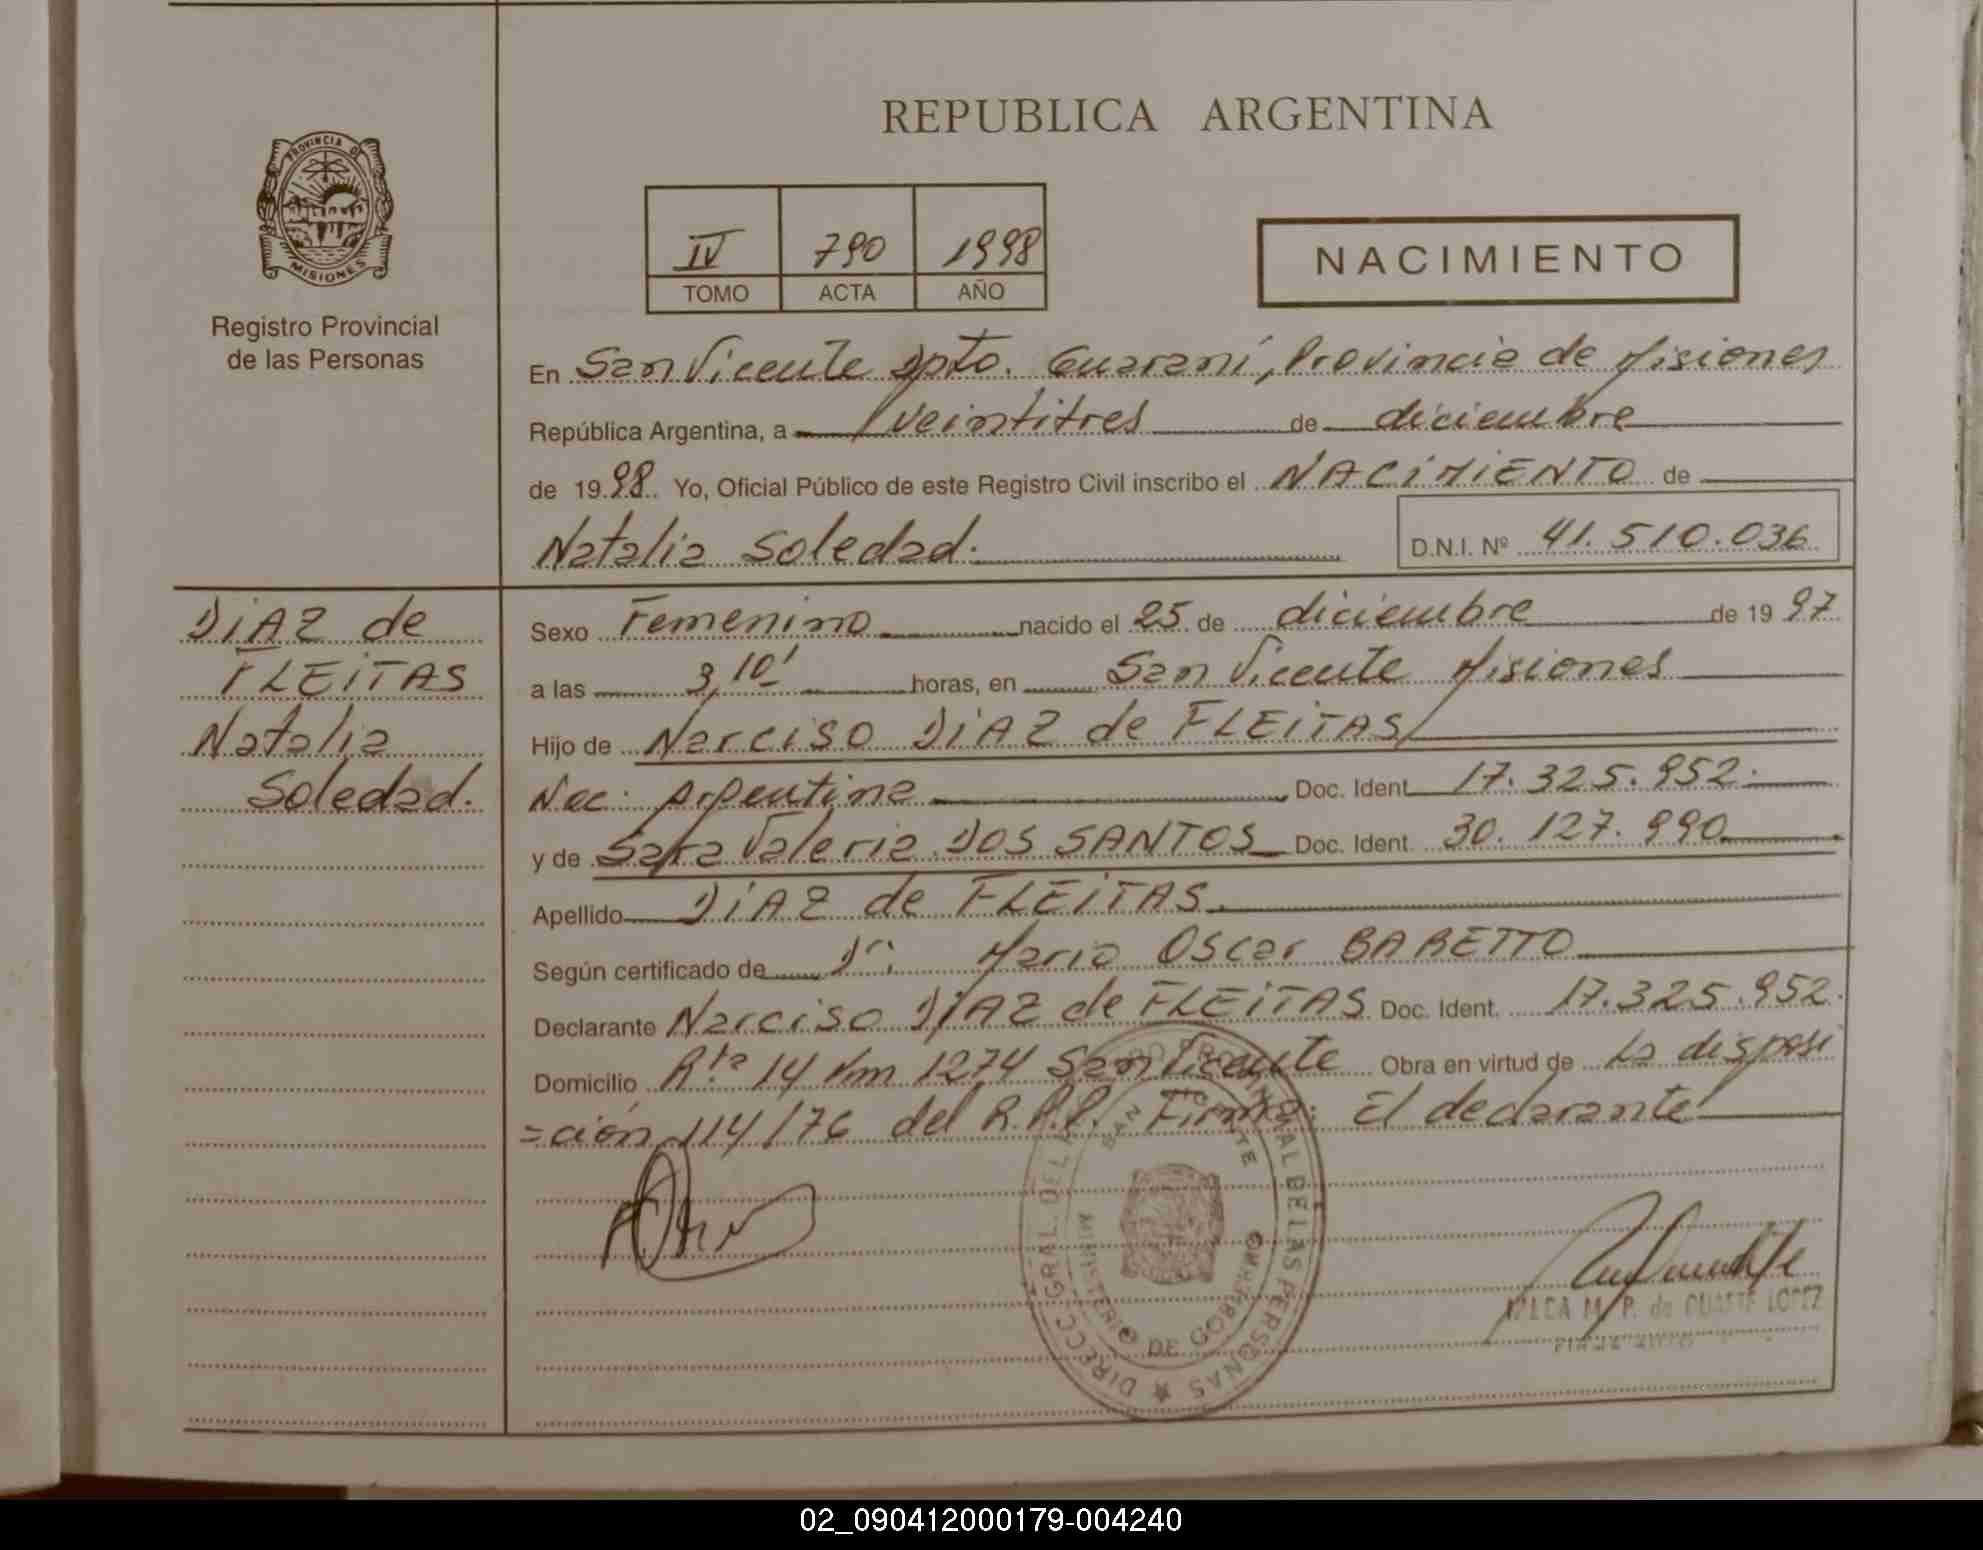 REPUBLICA ARGENTINA
PROVINCIA DE
MISIONES
Registro Provincial
de las Personas
IV 790 1998
TOMO ACTA AÑO
NACIMIENTO
En San Vicente Dpto. Guaraní, Provincia de Misiones
República Argentina, a veintitres de diciembre
de 1998. Yo, Oficial Público de este Registro Civil inscribo el NACIMIENTO de
Natalia Soledad.
D.N.I. Nº 41.510.036
DIAZ de
FLEITAS
Natalia
Soledad.
Sexo Femenino nacido el 25 de diciembre de 1997
a las 3,10' horas, en San Vicente Misiones
Hijo de Narciso DIAZ de FLEITAS
Nac. Argentina Doc. Ident 17.325.952.
y de Sara Valeria DOS SANTOS Doc. Ident 30.127.990
Apellido DIAZ de FLEITAS.
Según certificado de Dr. Mario Oscar BARETTO
Declarante Narciso DIAZ de FLEITAS Doc. Ident. 17.325.952.
Domicilio Rta 14 Km 1274 San Vicente Obra en virtud de La disposi
=ción 114/76 del R.P.P. Firma: El declarante
DIRECC. GRAL. DEL PROVINCIAL DE LAS PERSONAS
SAN VICENTE
MINISTERIO DE GOBIERNO
M. P. de DUARTE LOPEZ
02_090412000179-004240